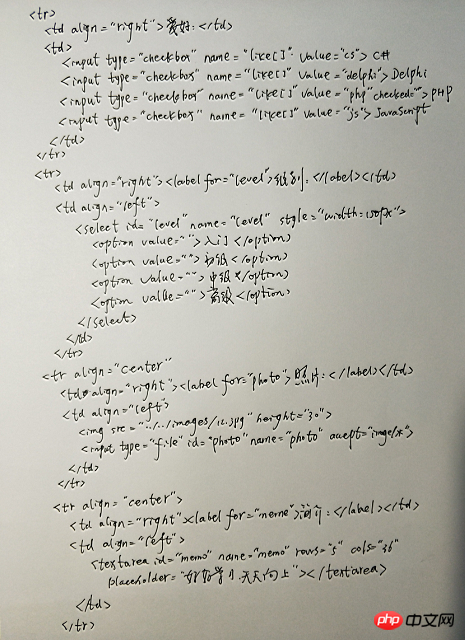 <tr>
<td align="right">爱好:</td>
<td>
<input type="checkbox" name="like[]" value="cs"> C#
<input type="checkbox" name="like[]" value="delphi"> Delphi
<input type="checkbox" name="like[]" value="php" checked=""> PHP
<input type="checkbox" name="like[]" value="js"> JavaScript
</td>
</tr>
<tr>
<td align="right"><label for="level">级别:</label></td>
<td align="left">
<select id="level" name="level" style="width:150px">
<option value="">入门</option>
<option value="">初级</option>
<option value="">中级</option>
<option value="">高级</option>
</select>
</td>
</tr>
<tr align="center"
<td align="right"><label for="photo">照片:</label></td>
<td align="left">
<img src="../../images/12.jpg" height="30">
<input type="file" id="photo" name="photo" accept="image/*">
</td>
</tr>
<tr align="center">
<td align="right"><label for="meme">简介:</label></td>
<td align="left">
<textarea id="memo" name="memo" rows="5" cols="36"
placeholder="好好学习.天天向上"></textarea>
</td>
</tr>
php 中文网